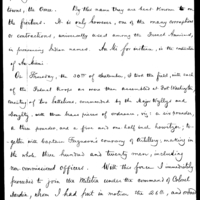 towns, the Omee. By this name they are best known on
the frontiers. It is only however, one of the many corruptions
or contractions, universally used among the French Canadians,
in pronouncing Indian names. Au Ke for instance, is the
Au
On Thursday, the 30th of September, I took the field, with such
of the federal troops as were then assembled at Fort Washington,
consisting of two battalions, commanded by the Majors Wyllys and
Doughty, with three brass pieces of ordnance, viz: a six pounder,
a three pounder, and a five and one half inch howitzer; to-
gether with Captain Ferguson's company of artillery, making in
the whole three hundred and twenty men, including
non commissioned officers. With this force I immediately
proceeded to join the Militia under the command of Colonel
Hardin, whom I had put in motion the 26th, and